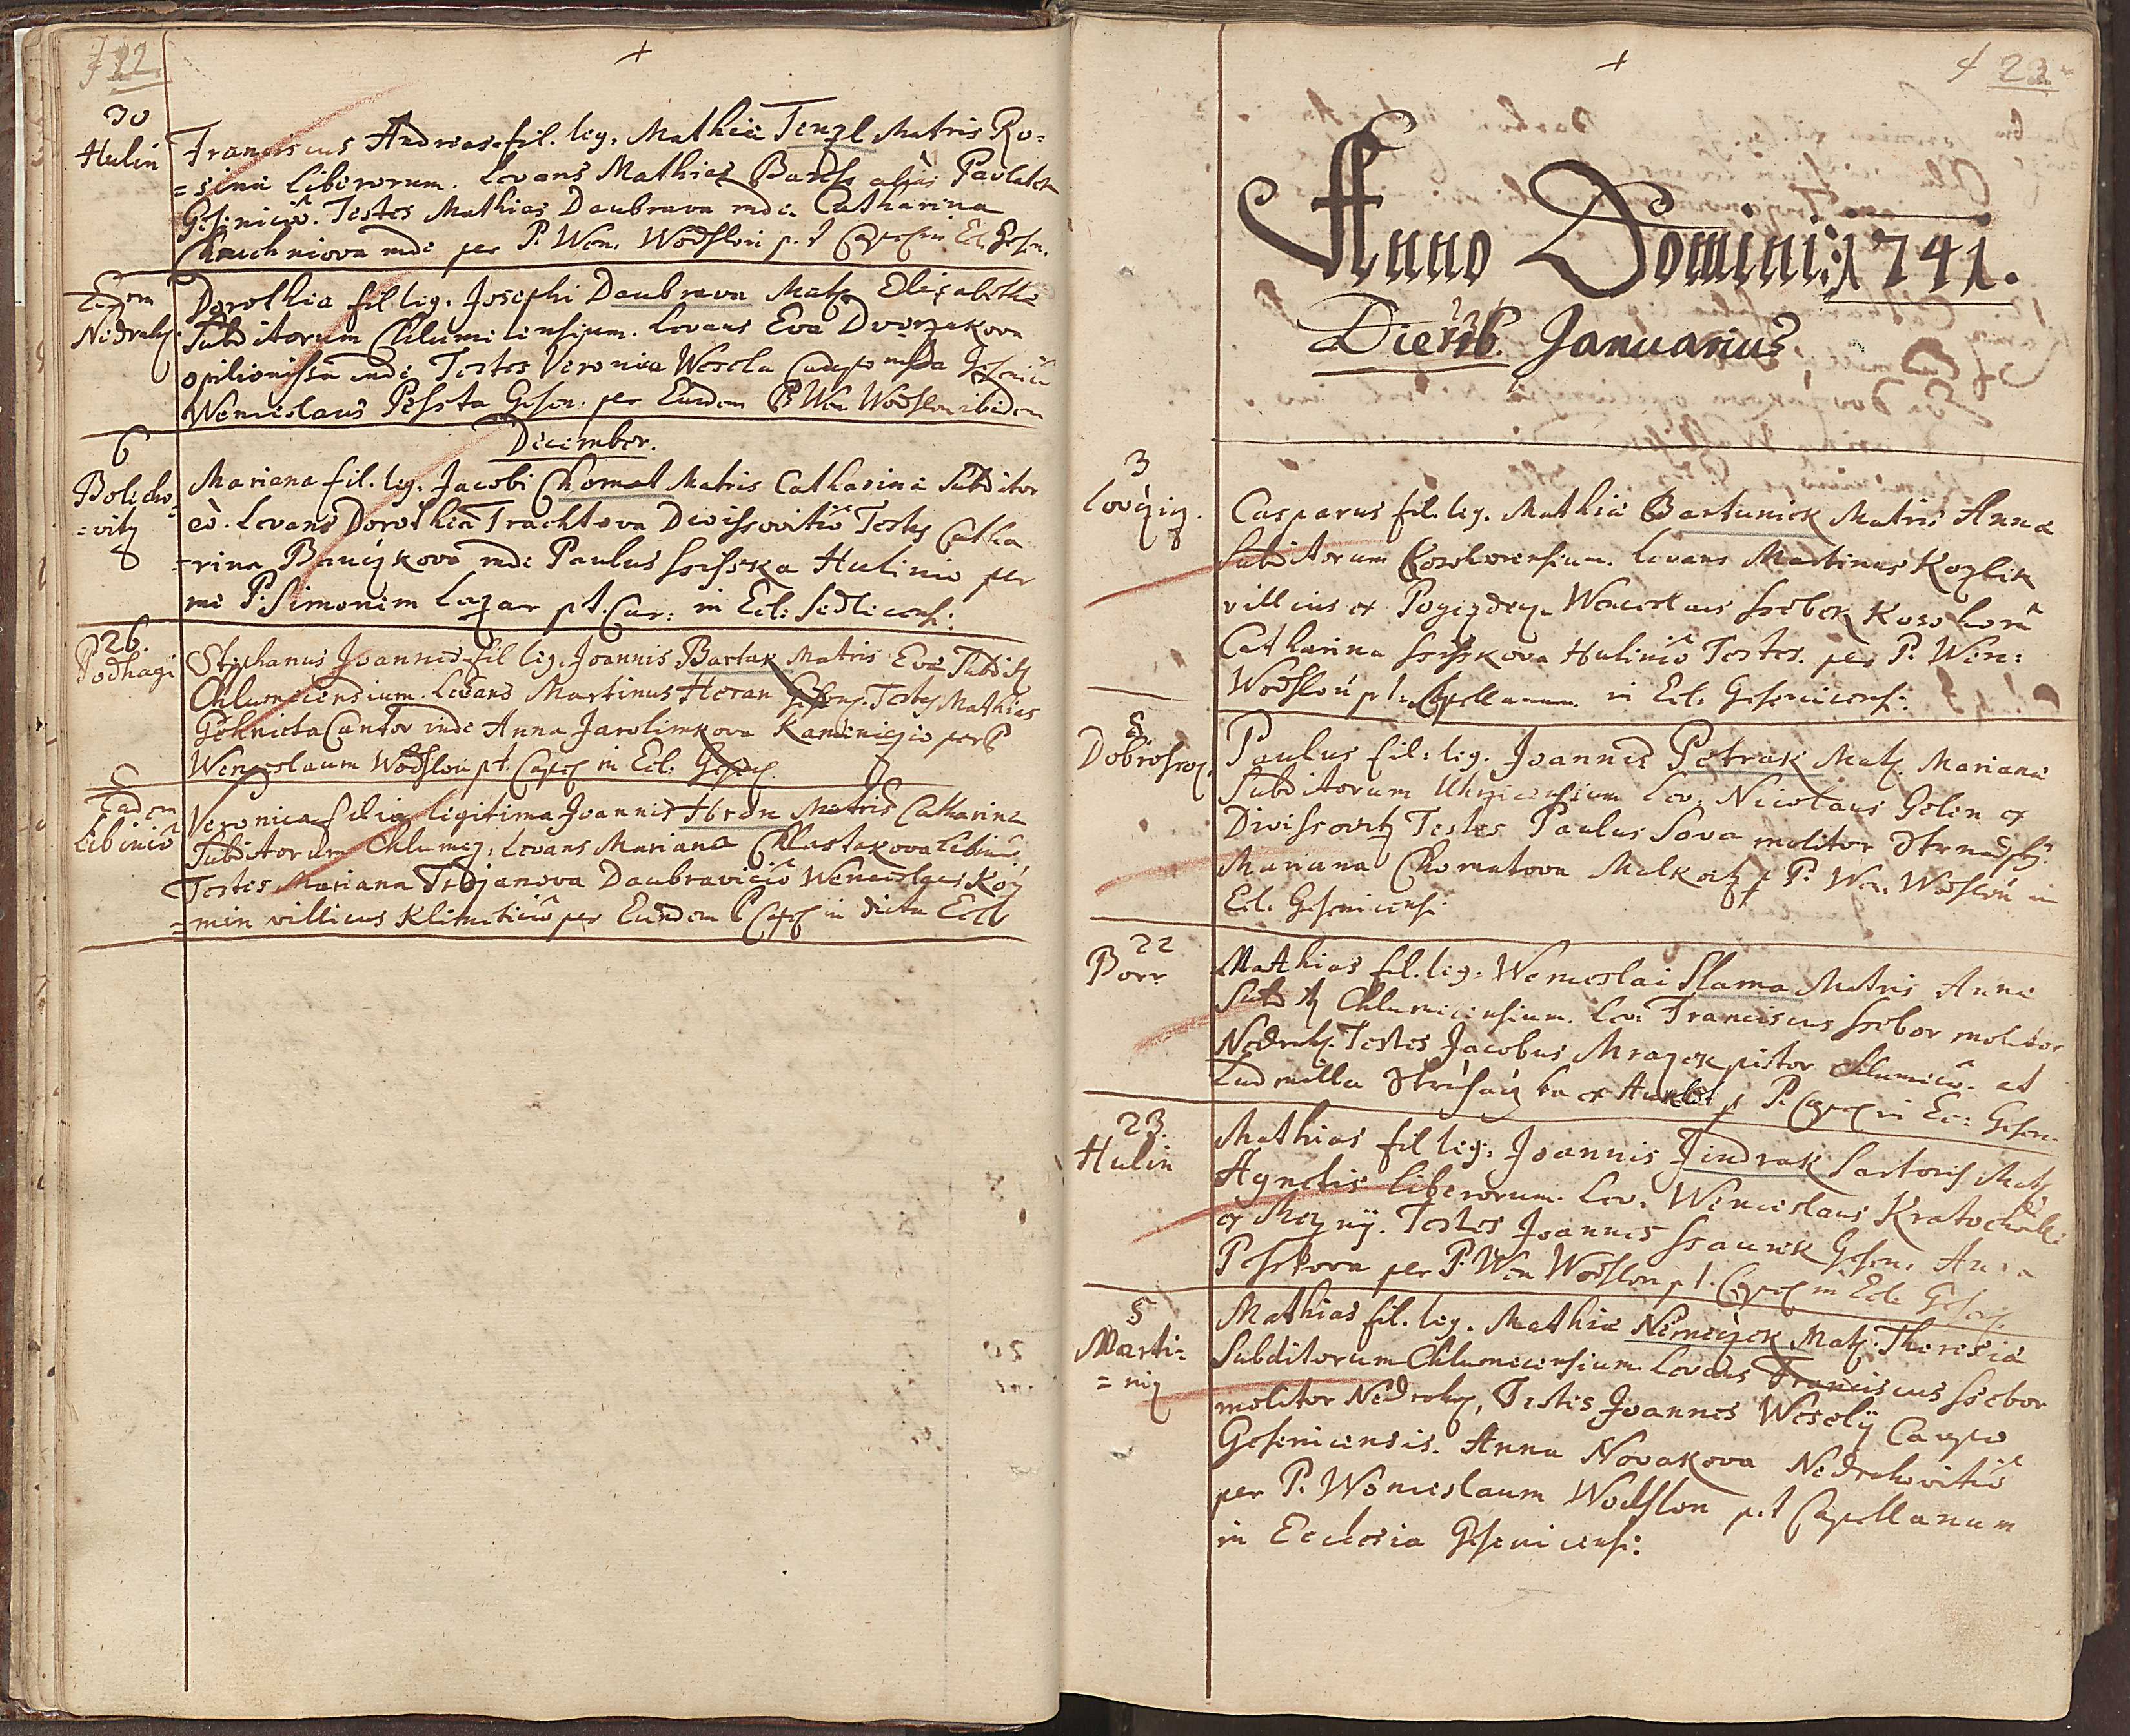 22
30
Hulin
Franciscus Andreas fil. leg. Mathiæ Tenzl Matris Ro=
=sinæ Liberorum. Levans Mathias
Gesenicio. Testes Mathias Daubrava inde Catharina
inde per P. Wen. Wodslon p.t. in Ecl. Gesen.
Eadem
Nedrah.
Dorothia fil leg. Josephi Daubrava Mat. Elisabethæ
Subditorum Chlumicensium. Levans Eva Dvorzakova
opilionissa inde Testes Veronica Wesela Gesenicio
Wenceslaus Pessta Gesen. per Eundem P Wen Wodslon ibidem
December.
6
Bolecho=
=vitz
Mariana fil. leg. Jacobi Chomat Matris Catharinæ Subditor
eo. Levans Dorothia Trachtova Divissovitio Testes Catha
=rina inde Paulus Ssisska Hulinio per
me P. Simonem Lazar p.t. Cur: in Ecl: Sedlicensi:
26.
Podhagi
Stephanus Joannes fil leg. Joannis Bartak Matris Evæ Subdit
Chlumecensium. Levans Martinus Heran Testes Mathias
Cantor inde Anna Jarolimkova per P
Wenceslaum Wodslon p.t. Capel in Ecl. Gesen
Eadem
Libinio
Veronica filia legitima Joannis Hrdn Matris Catharinæ
Subditorum Chlumez: Levans Mariana Chlastakova Libinio
Testes Mariana Trojanova Daubravicio Wenceslaus Koz
=min villicus Klimiticio per Eundem P Capel in dicta Ecl
23
Anno Domini 1741.
Dierib. Januarius
3
Lovczicz.
Casparus fil. leg. Mathiæ Bartuniek Matris Annæ
Subditorum Levans Martinus Kozlik
villicus ex Wenceslaus Ssebek
Catharina Ssisskova Hulinio Testes. per P. Wen:
Wodslon p.t. Capellanum in Ecl. Gesenicensi:
8.
Dobrossov.
Paulus fil: leg. Joannis Petrak Mat. Marianæ
Subditorum Lev: Nicolaus Golen ex
Divissovitz Testes Paulus Sova molitor
Mariana Chomatova P. Wen. Wodslon in
Ecl. Gesenicensi
22
Borr
Mathias fil. leg. Wenceslai Slama Matris Annæ
Subdit Chlumicensium. Lev. Franciscus Ssebor molitor
Nedrah. Testes Jacobus Mrazek pistor Chlumicio. et
Ludmilla ex P. Capel in Ec: Gesen.
23.
Hulin
Mathias fil leg: Joannis Jindrak Sartoris Mat
Agnetis Liberorum. Lev. Wenceslaus Kratochwil
ex Testes Joannes Ssaurek Gesen. Anna
Pesstova per P. Wen Wodslon p.t. Capel in Ecl. Gesen.
5
Marti=
=nicz
Mathias fil. leg. Mathiæ Nemeczek Mat. Theresiæ
Subditorum Chlumecensium. Levans Franciscus Ssebor
molitor Nedrah, Testis Joannes Weselÿ Caupo
Gesenicensis. Anna Novakova Nedrahovitio
per P. Wenceslaum Wodslon p.t Capellanum
in Ecclesia Gesenicensi: